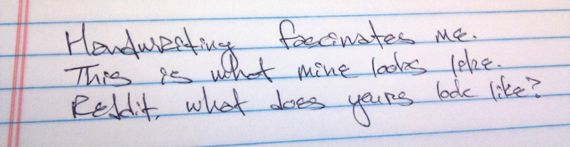 Handwriting fascinates me.
This is what mine looks like.
Reddit, what does yours look like?